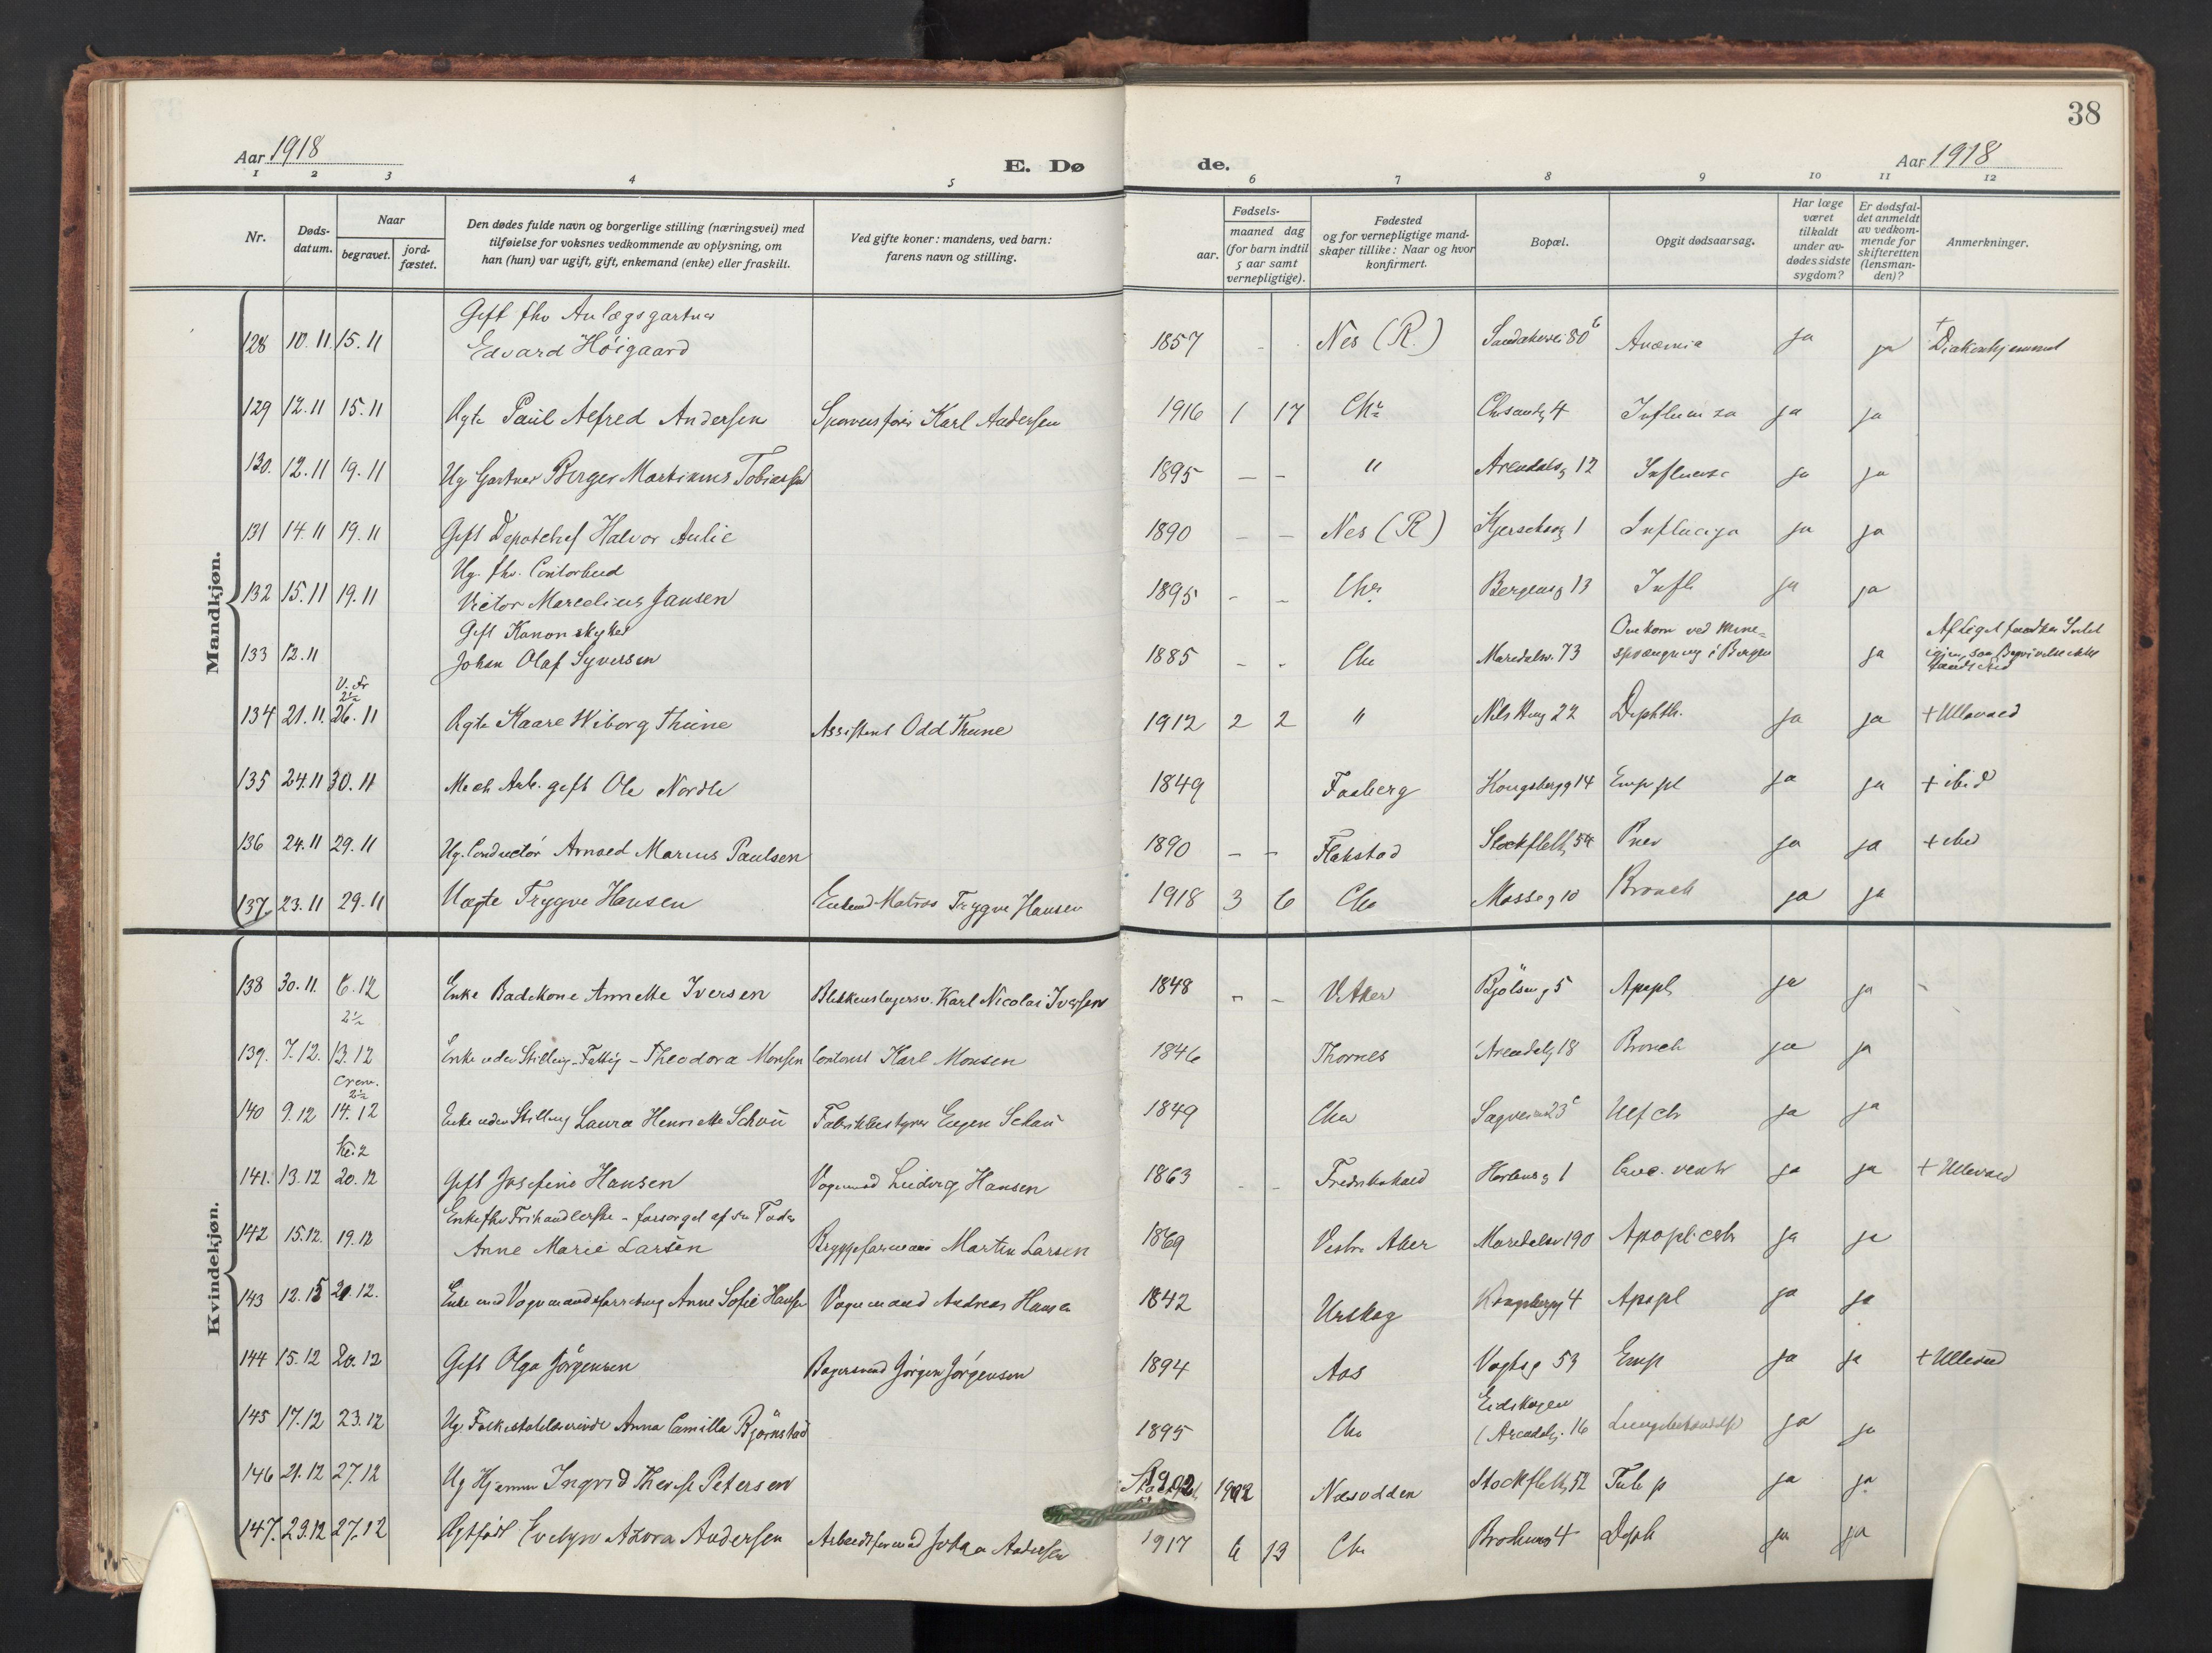 38
Aar 1918
E. Dø
de.
Aar 1918
1 2 3 4 5 6 7 8 9 10 11 12
Nr.
Døds-
datum.
Naar
begravet.
jord-
fæstet.
Den dødes fulde navn og borgerlige stilling (næringsvei) med
tilføielse for voksnes vedkommende av oplysning, om
han (hun) var ugift, gift, enkemand (enke) eller fraskilt.
Ved gifte koner: mandens, ved barn:
farens navn og stilling.
Fødsels-
aar.
maaned dag
(for barn indtil
5 aar samt
vernepligtige).
Fødested
og for vernepligtige mand-
skaper tillike: Naar og hvor
konfirmert.
Bopæl.
Opgit dødsaarsag.
Har læge
været
tilkaldt
under av-
dødes sidste
sygdom?
Er dødsfal-
det anmeldt
av vedkom-
mende for
skifteretten
(lensman-
den)?
Anmerkninger.
Mandkjøn.
Gift fhv Anlægsgartner
128 10.11 15.11 Edvard Höigaard 1857 - - Nes (R.) Sandakervei 80 Anæmia ja ja + Diakonhjemmet
129 12.11 15.11 Ægte Paul Alfred Andersen Sporveisfører Karl Andersen 1916 1 17 Chr Chrsandsg 4 Influenza ja ja
130. 12.11 19.11 Ug Gartner Berger Martinius Tobiassen 1895 - - " Arendalsg 12 Influenza ja ja
131 14.11 19.11 Gift Depotchef Halvor Aulie 1890 - - Nes (R) 1 Influenza ja ja
Ug. fhv. Contorbud
132 15.11 19.11 Victor Marcelius Jansen 1895 - - Chr Bergensg 13 Infl ja ja
Gift Kanonskytter
133 12.11 Johan Olaf Syversen 1885 - - Chr Maridalsv. 73 Omkom ved Mine=
sprængning i Bergen ja Af Liget fandtes Intet
igjen, saa Begravelse ikke
fandt Sted
V. Ar
2½
134 21.11. 26.11 Ægte Kaare Wiborg Thune Assistent Odd Thune 1912 2 2 " 22 Diphth. ja ja + Ullevaal
135 24.11 30.11 Mech Arb. gift Ole Nordli 1849 Faaberg Kongsbergg 14 Emp pl ja ja + ibid
136 24.11 29.11 Ug. Conductör Arnold Marius Paulsen 1890 - - Flakstad Stockflethg 54 Pnev ja ja + ibid
137. 23.11 29.11 Uægte Trygve Hansen Matros Trygve Hansen 1918 3 6 Chr Mosseg 10 Bronch ja ja
Kvindekjøn.
138 30.11. 6.12 Enke Badekone Annette Iversen Karl Nicolai Iversen 1848 - - V. Aker Bjölseng 5 Apopl ja ja -
2½
139. 7.12. 13.12 Enke uden Stilling - Fattig - Theodora Monsen Contorist Karl Monsen 1846 Thornes Arendalsg 18 Bronch ja ja
Crem.
2½
140 9.12 14.12 Enke uden Stilling Laura Henriette Schou Fabrikbestyrer Eugen Schou 1849 Chr Sagveien 23 c Ulf ch ja ja
Kl. 2
141. 13.12 20.12 Gift Josefine Hansen Vognmand Ludvig Hansen 1863 - - Fredrikshald Hortensg 1 Canc. ventr ja ja + Ullevaal
Enke fhv Frihandlerske - forsørget af sin Fader
142 15.12. 19.12 Anne Marie Larsen Bryggeformand Martin Larsen 1869 Vestre Aker Maridalsv 190 Apopl. cerb ja ja
143 12.15 20.12. Enke med Vognmandsforretning Anne Sofie Hansen Vognmand Andreas Hansen 1842 Urskog Kongsbergg 4 Apopl ja ja
144 15.12 20.12 Gift Olga Jörgensen Bagersvend Jörgen Jörgensen 1894 Aas Vogtsg 53 Emp ja ja + Ullevaal
Eidskogen
145 17.12 23.12 Ug. Anna Camilla Björnstad 1895 Chr (Arendalsg. 16 Lungebetændelse ja ja
146 21.12 27.12 Ug Hjemme Ingrid Therese Petersen 1902 1902 Næsodden Stockflethg 52 Tub p ja ja
147. 23.12 27.12 Ægtefödt Evelyn Azora Andersen Arbeidsformand Johan Andersen 1917 6 13 Chr 4 Diph ja ja